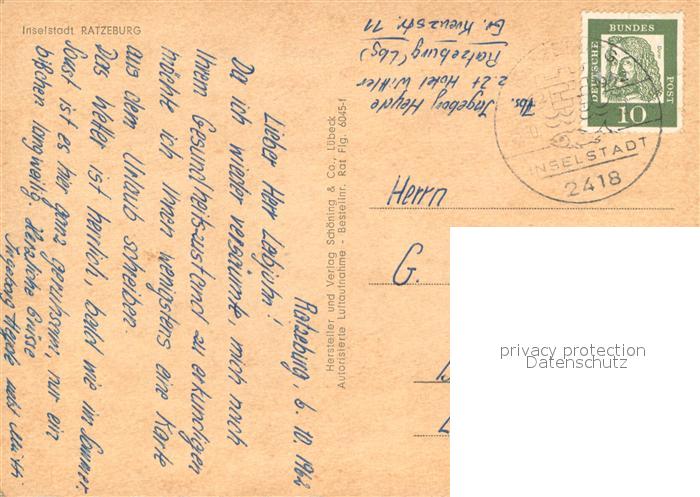 Inselstadt RATZEBURG
Ratzeburg, 6. 10. 1962
Lieber Herr
Da ich wieder versäumte, mich nach
Ihrem Gesundheitszustand zu erkundigen
möchte ich Ihnen wenigstens eine Karte
aus dem Urlaub schreiben.
Das Wetter ist herrlich, bald wie im Sommer.
Sonst ist es hier ganz geruhsam, nur ein
bißchen langweilig. Herzliche Grüsse
Ingeborg Heyde
Hersteller und Verlag Schöning & Co., Lübeck
Autorisierte Luftaufnahme - Bestellnr. Rat Flg. 6045-f
Abs. Ingeborg Heyde
z. Zt Hotel Wittler
Ratzeburg (Lbg)
Gr. Kreuzstr. 11
DEUTSCHE
BUNDES
POST
10
INSELSTADT
2418
Herrn
G.
privacy protection
Datenschutz